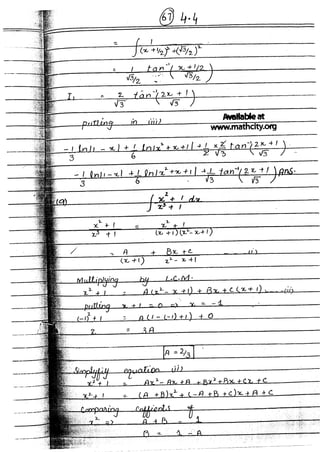 67 4.4
= ∫ 1 / (x + 1/2)² + (√3/2)²
= 1/(√3/2) tan⁻¹( (x + 1/2) / (√3/2) )
I₁ = 2/√3 tan⁻¹( (2x + 1)/√3 )
Available at
putting in iii)
www.mathcity.org
-1/3 ln|1 - x| + 1/6 ln|x² + x + 1| + 1/2 × 2/√3 tan⁻¹( (2x + 1)/√3 )
-1/3 ln|1 - x| + 1/6 ln|x² + x + 1| + 1/√3 tan⁻¹( (2x + 1)/√3 ) Ans.
∫ (x² + 1)/(x³ + 1) dx
(x² + 1)/(x³ + 1) = (x² + 1)/((x + 1)(x² - x + 1))
= A/(x + 1) + (Bx + c)/(x² - x + 1) --- i)
Multiplying by L.C.M.
x² + 1 = A(x² - x + 1) + Bx + c(x + 1) --- ii)
putting x + 1 = 0 => x = -1
(-1)² + 1 = A(1 - (-1) + 1) + 0
2 = 3A
A = 2/3
Simplify equation ii)
x² + 1 = Ax² - Ax + A + Bx² + Bx + Cx + C
x² + 1 = (A + B)x² + (-A + B + c)x + A + C
Comparing Coefficients of
x² => A + B = 1
B = 1 - A